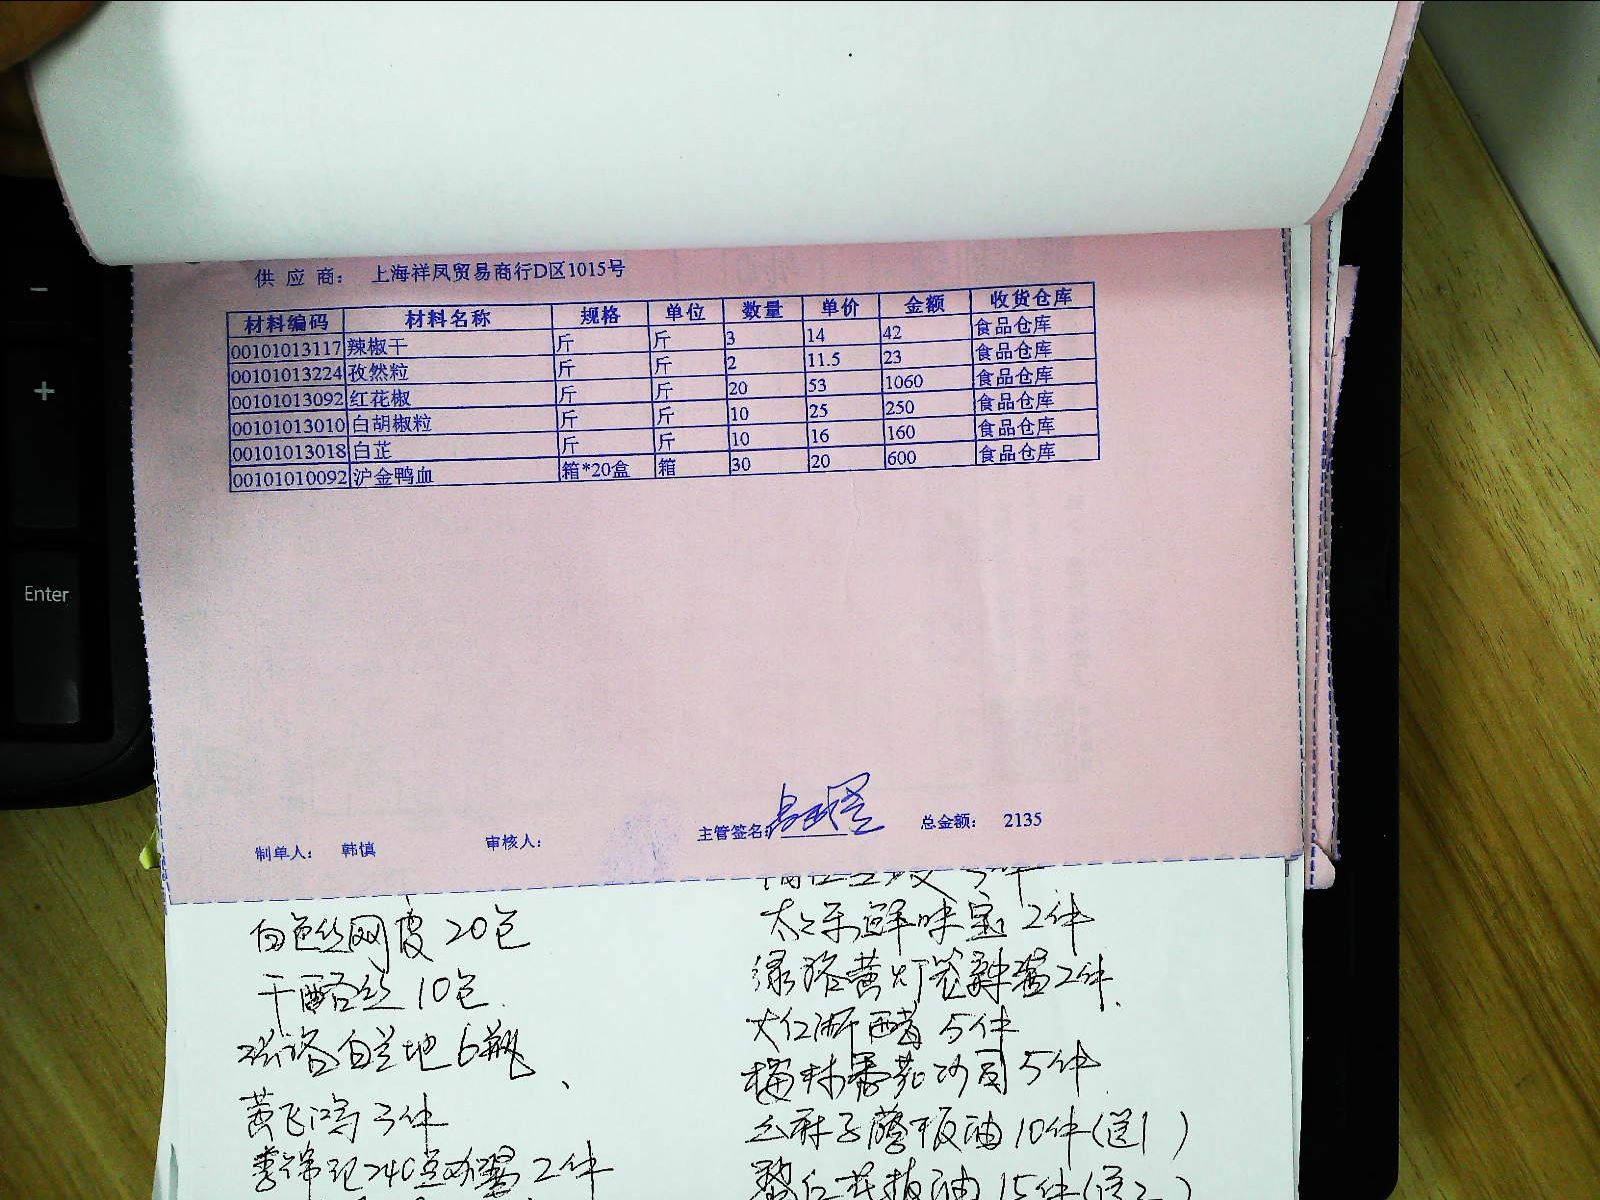 供 应 商： 上海祥凤贸易商行D区1015号
材料编码 材料名称 规格 单位 数量 单价 金额 收货仓库
00101013117 辣椒干 斤 斤 3 14 42 食品仓库
00101013224 孜然粒 斤 斤 2 11.5 23 食品仓库
00101013092 红花椒 斤 斤 20 53 1060 食品仓库
00101013010 白胡椒粒 斤 斤 10 25 250 食品仓库
00101013018 白芷 斤 斤 10 16 160 食品仓库
00101010092 沪金鸭血 箱*20盒 箱 30 20 600 食品仓库
制单人： 韩慎 审核人： 主管签名： 总金额： 2135
白色丝网皮 20包
干酪丝 10包
白兰地 6瓶
黄飞鸿 3件
李锦记 240 2件
太太乐鲜味宝 2件
黄灯笼辣酱 2件
大红浙醋 5件
梅林番茄沙司 5件
幺麻子藤椒油 10件(送1)
油 15件(送2)
Enter